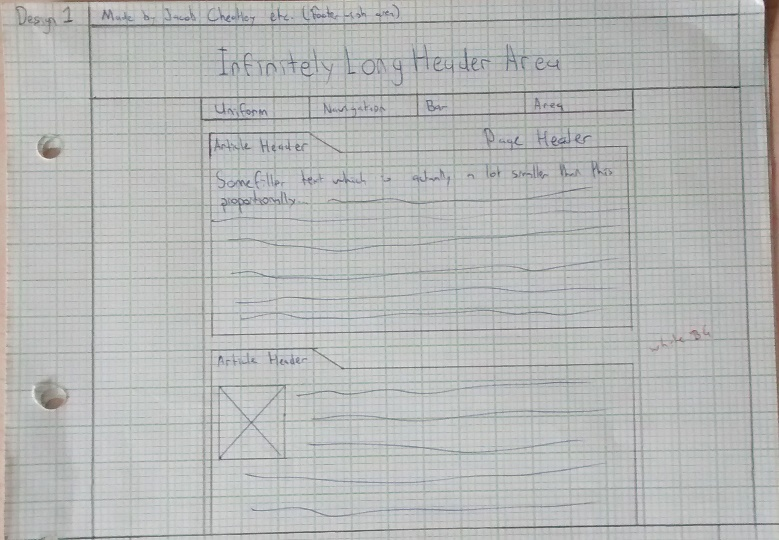 Design 1
Made by Jacob Cheatley etc. (Footer-ish area)
Infinitely Long Header Area
Uniform Navigation Bar Area
Article Header
Page Header
Some filler text which is actually a lot smaller than this
proportionally...
white BG
Article Header